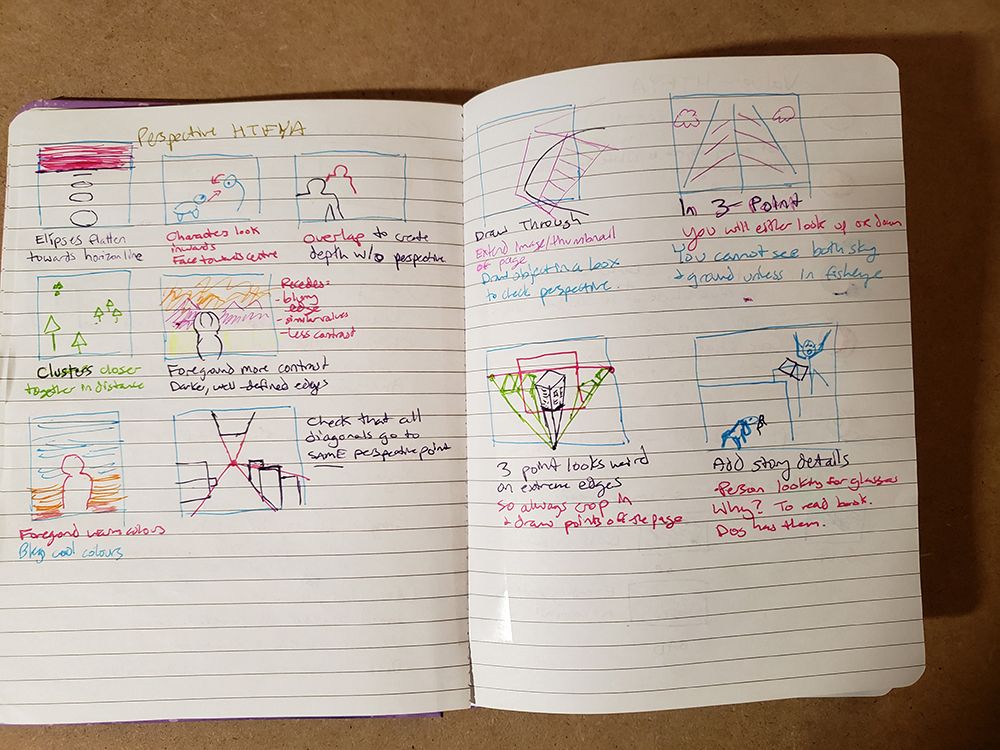 Perspective HTFYA
Elipses flatten
towards horizon line
Characters look
inwards
Face towards centre
Overlap to create
depth w/o perspective
Clusters closer
together in distance
Recedes:
- blurry
edge
- similar values
- less contrast
Foreground more contrast
Darker, well-defined edges
Foregrond warm colours
Bkg cool colours
Check that all
diagonals go to
SAME perspective point
Draw Through
Extend image/thumbnail
off page
Draw object in a box
to check perspective.
In 3-Point
You will either look up or down
You cannot see both sky
+ ground unless in fisheye
3 point looks weird
on extreme edges
So always crop in
+ draw points off the page
Add story details
-Person looking for glasses
Why? To read book.
Dog has them.